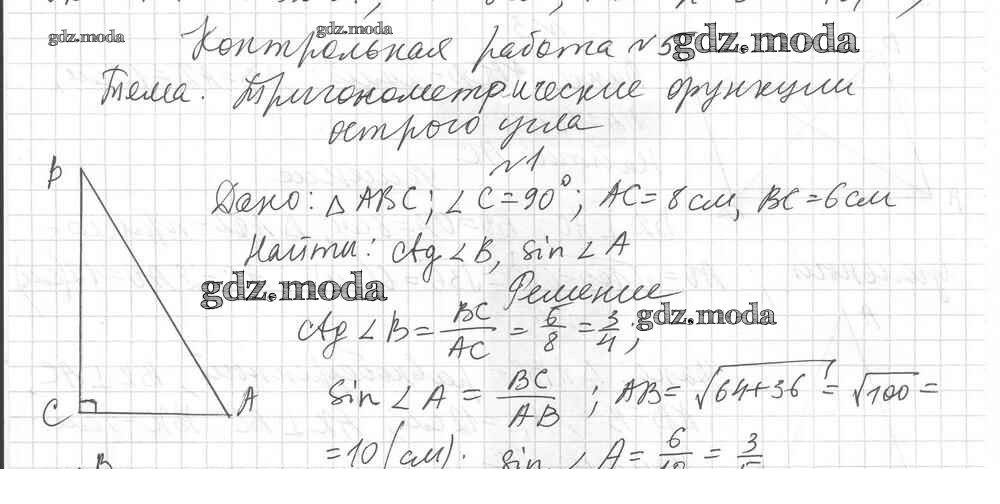 gdz.moda gdz.moda
Контрольная работа №5 gdz.moda
Тема. Тригонометрические функции
острого угла
№1
B
Дано: △ ABC; ∠ C = 90°; AC = 8 см, BC = 6 см
Найти: ctg ∠ B, sin ∠ A
gdz.moda Решение
ctg ∠ B = BC/AC = 6/8 = 3/4; gdz.moda
C A sin ∠ A = BC/AB; AB = √64+36 = √100 =
= 10 (см). sin ∠ A = 6/10 = 3/5
B